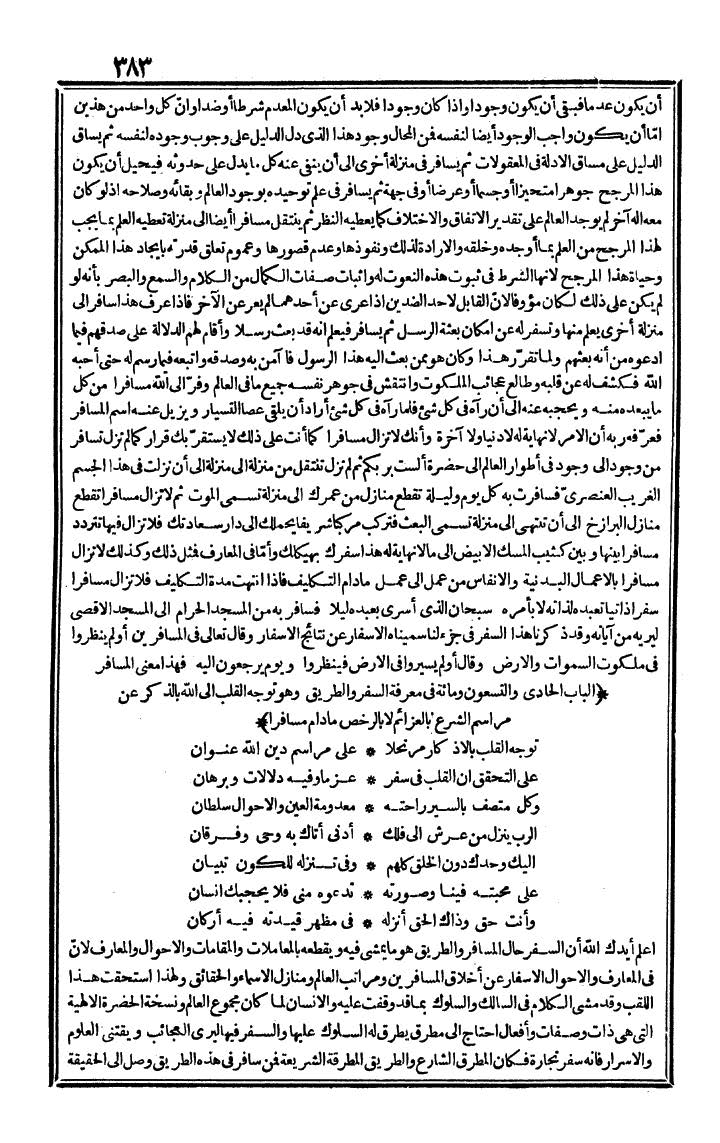 ٣٨٣
أن يكون عدما فبقي أن يكون وجودا واذا كان وجودا فلا بد أن يكون المعدم شرطا أو ضدا وان كل واحد من هذين
امّا أن يكون واجب الوجود أيضا لنفسه فمن المحال وجود هذا الذى دل الدليل على وجوب وجوده لنفسه ثم يساق
الدليل على مساق الادلة فى المعقولات ثم يسافر فى منزلة أخرى الى أن ينفى عنه كل ما يدل على حدوثه فيحيل أن يكون
هذا المرجح جوهرا متحيزا أو جسما أو عرضا أو فى جهة ثم يسافر فى علم توحيده بوجود العالم وبقائه وصلاحه اذ لو كان
معه اله آخر لم يوجد العالم على تقدير الاتفاق والاختلاف كما يعطيه النظر ثم ينتقل مسافرا أيضا الى منزلة تعطيه العلم بما يجب
لهذا المرجح من العلم بما أوجده وخلقه والارادة لذلك ونفوذها وعدم قصورها وعموم تعلق قدرته بايجاد هذا الممكن
وحياة هذا المرجح لانها الشرط فى ثبوت هذه النعوت له واثبات صفات الكمال من الكلام والسمع والبصر بأنه لو
لم يكن على ذلك لكان مؤوفا لانّ القابل لاحد الضدين اذا عرى عن أحدهما لم يعر عن الآخر فاذا عرف هذا سافر الى
منزلة أخرى يعلم منها وتسفر له عن امكان بعثة الرسل ثم يسافر فيعلم انه قد بعث رسلا وأقام لهم الدلالة على صدقهم فيما
ادعوه من أنه بعثهم ولما تقرّر هذا وكان هو ممن بعث اليه هذا الرسول فآمن به وصدقه واتبعه فيما رسم له حتى أحبه
الله فكشف له عن قلبه وطالع عجائب الملكوت وانتقش فى جوهر نفسه جميع ما فى العالم وفرّ الى الله مسافرا من كل
ما يبعده منه ويحجبه عنه الى أن رآه فى كل شئ فلما رآه فى كل شئ أراد أن يلقى عصا التسيار ويزيل عنه اسم المسافر
فعرّفه ربه أن الامر لا نهاية له لا دنيا ولا آخرة وأنك لا تزال مسافرا كما أنت على ذلك لا يستقرّ بك قرار كما لم تزل تسافر
من وجود الى وجود فى أطوار العالم الى حضرة ألست بربكم ثم لم تزل تنتقل من منزلة الى منزلة الى أن نزلت فى هذا الجسم
الغريب العنصرىّ فسافرت به كل يوم وليلة تقطع منازل من عمرك الى منزلة تسمى الموت ثم لا تزال مسافرا تقطع
منازل البرازخ الى أن تنتهى الى منزلة تسمى البعث فتركب مركبا شريفا يحملك الى دار سعادتك فلا تزال فيها تتردد
مسافرا بينها وبين كثيب المسك الابيض الى ما لا نهاية له هذا سفرك بهيكلك وأمّا فى المعارف فمثل ذلك وكذلك لا تزال
مسافرا بالاعمال البدنية والانفاس من عمل الى عمل مادام التكليف فاذا انتهت مدة التكليف فلا تزال مسافرا
سفرا ذاتيا تعبده لذاته لا بأمره سبحان الذى أسرى بعبده ليلا فسافر به من المسجد الحرام الى المسجد الاقصى
ليريه من آياته وقد ذكرنا هذا السفر فى جزء لنا سميناه الاسفار عن نتائج الاسفار وقال تعالى فى المسافرين أولم ينظروا
فى ملكوت السموات والارض وقال أولم يسيروا فى الارض فينظروا ويوم يرجعون اليه فهذا معنى المسافر
﴿الباب الحادى والتسعون ومائة فى معرفة السفر والطريق وهو توجه القلب الى الله بالذكر عن
مراسم الشرع بالعزائم لا بالرخص مادام مسافرا﴾
توجه القلب بالاذكار مرتحلا * على مراسم دين الله عنوان
على التحقق ان القلب فى سفر * عزما وفيه دلالات وبرهان
وكل متصف بالسير راحته * معدومة العين والاحوال سلطان
الرب ينزل من عرش الى فلك * أدنى أتاك به وحى وفرقان
اليك وحدك دون الخلق كلهم * وفى تنزله للكون تبيان
على محبته فينا وصورته * تدعوه منى فلا يحجبك انسان
وأنت حق وذاك الحق أنزله * فى مظهر قيدته فيه أركان
اعلم أيدك الله أن السفر حال المسافر والطريق هو ما يمشى فيه ويقطعه بالمعاملات والمقامات والاحوال والمعارف لانّ
فى المعارف والاحوال الاسفار عن أخلاق المسافرين ومراتب العالم ومنازل الاسماء والحقائق ولهذا استحقت هذا
اللقب وقد مشى الكلام فى السالك والسلوك بما قد وقفت عليه والانسان لما كان مجموع العالم ونسخة الحضرة الالهية
التى هى ذات وصفات وأفعال احتاج الى مطرق يطرق له السلوك عليها والسفر فيها ليرى العجائب ويقتنى العلوم
والاسرار فانه سفر تجارة فكان المطرق الشارع والطريق المطرقة الشريعة فمن سافر فى هذه الطريق وصل الى الحقيقة